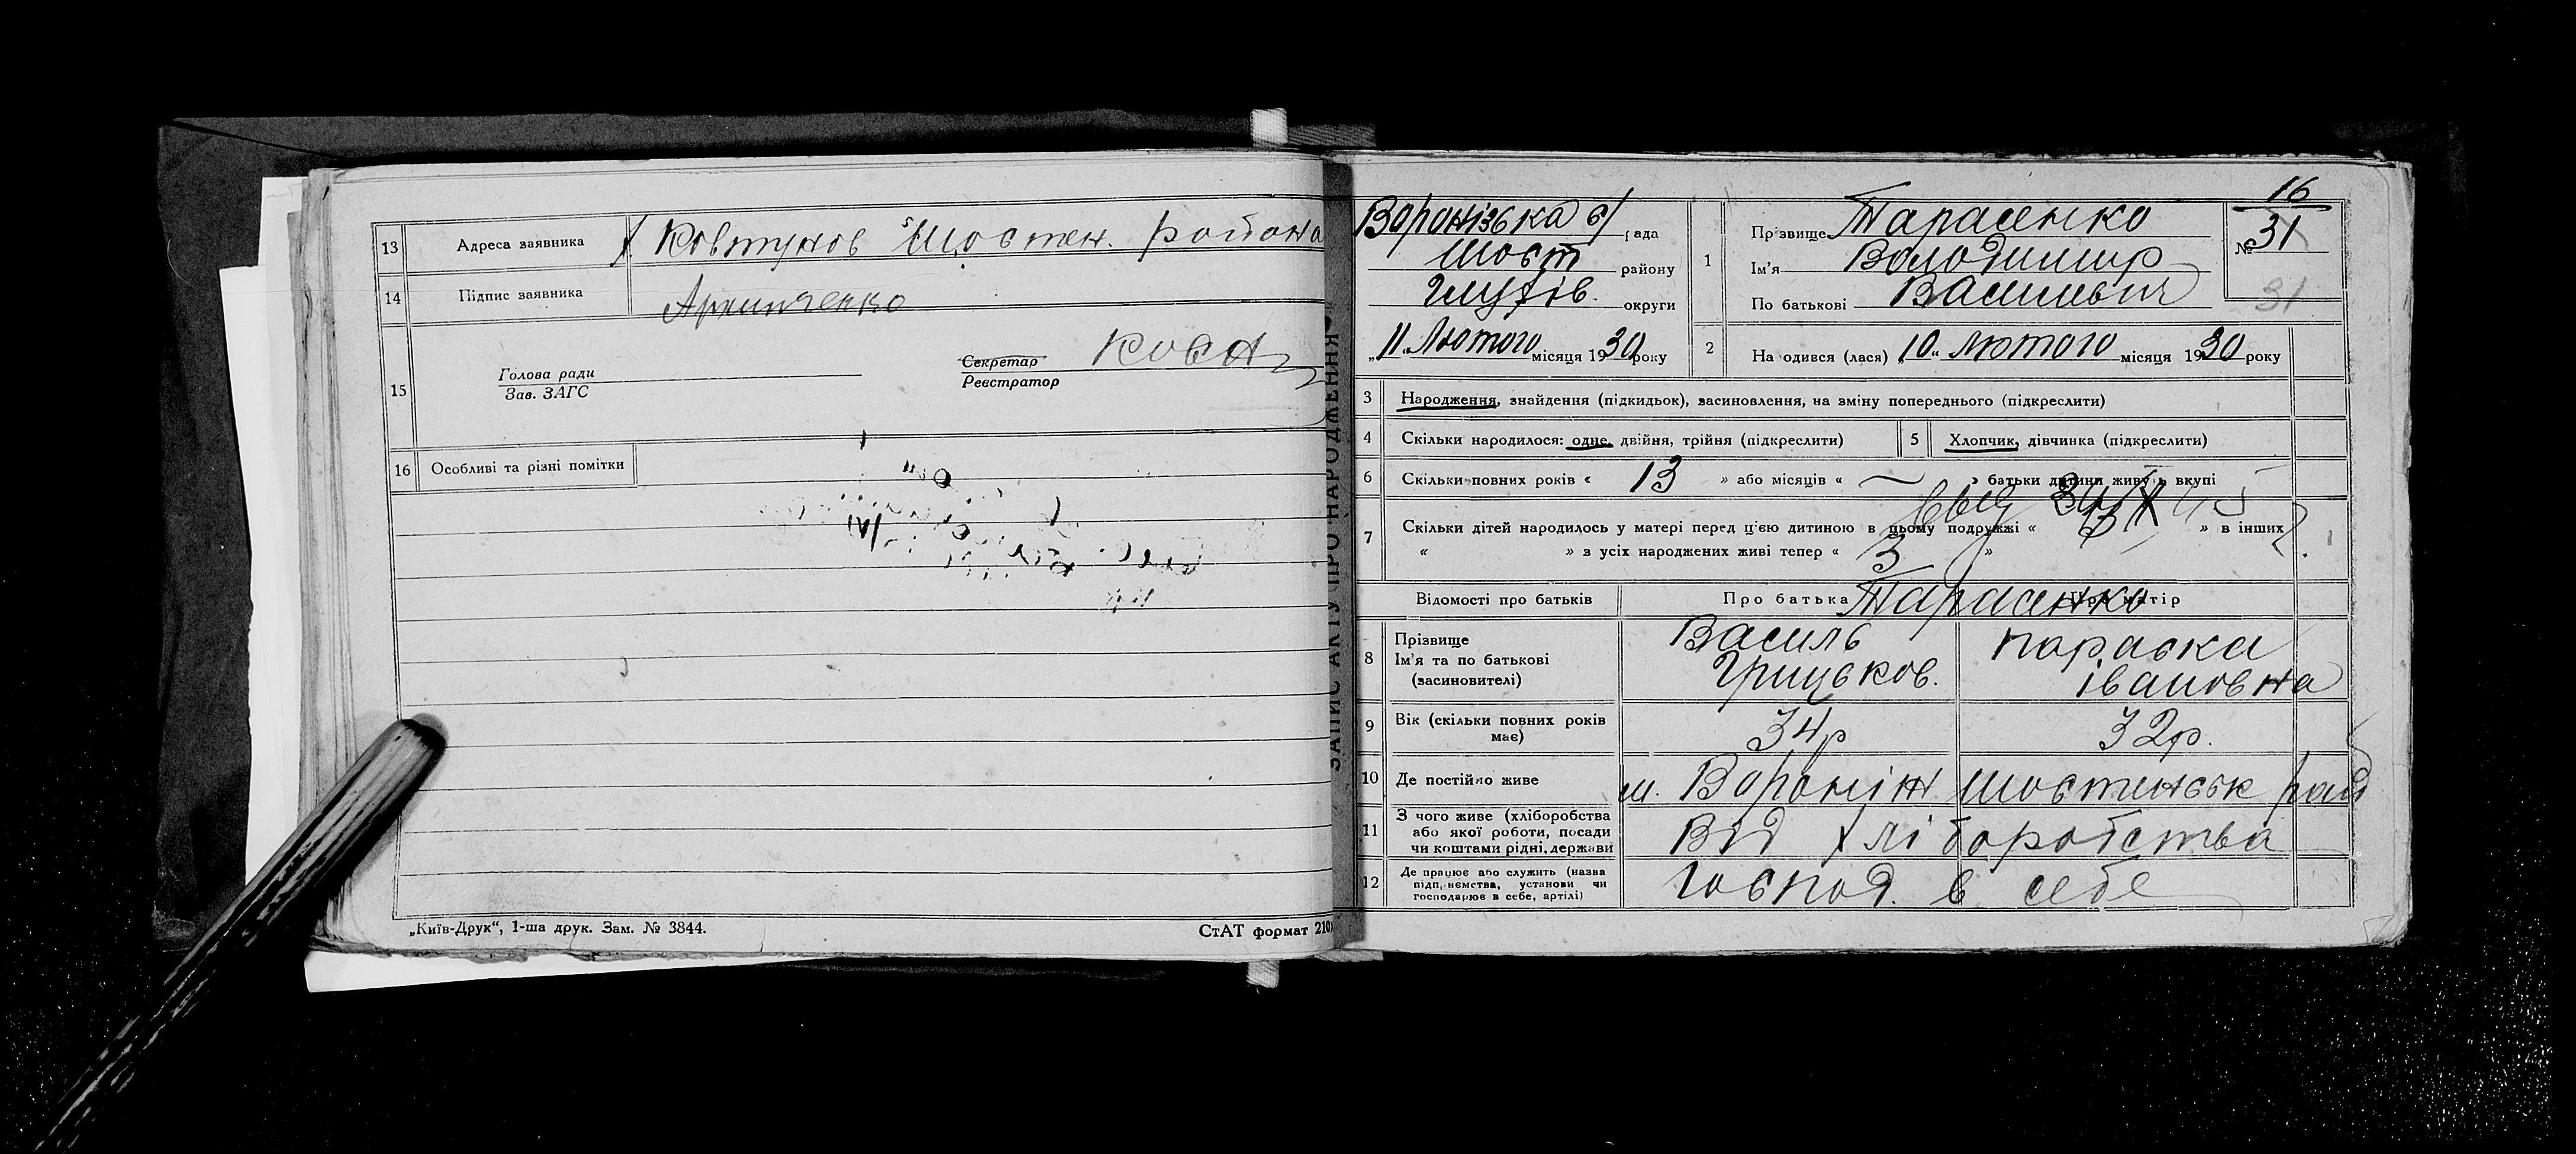 13 Адреса заявника х. Ковтунов Шостен. района
14 Підпис заявника Архипченко
15 Голова ради
Зав. ЗАГС
Секретар
Реєстратор
16 Особливі та різні помітки
„Київ-Друк“, 1-ша друк. Зам. № 3844.
СтАТ формат 210
ЗАПИС АКТУ ПРО НАРОДЖЕННЯ
16
Воронізька с/рада
Шост району
Глухів. округи
„11„ Лютого місяця 1930 року
1 Прізвище Тарасенко
Ім’я Володимир
По батькові Васильвич
№ 31
31
2 На одився (лася) „10„ лютого місяця 1930 року
3 Народження, знайдення (підкидьок), засиновлення, на зміну попереднього (підкреслити)
4 Скільки народилося: одне, двійня, трійня (підкреслити)
5 Хлопчик, дівчинка (підкреслити)
6 Скільки повних років « 13 » або місяців « — » батьки дитини живуть вкупі
7 Скільки дітей народилось у матері перед цією дитиною в цьому подружжі « 3 » в інших
« » з усіх народжених живі тепер « 3 »
Відомості про батьків Про батька Про матір
Тарасенко
8 Прізвище
Ім’я та по батькові
(засиновителі)
Василь
Грицьков.
Параска
івановна
9 Вік (скільки повних років має) 34р 32р.
10 Де постійно живе м. Вороніж Шостенськ рай
11 З чого живе (хліборобства
або якої роботи, посади
чи коштами рідні, держави
Від хліборобства
12 Де працює або служить (назва
підприємства, установи чи
господарює в себе, артілі)
Господ. в себе